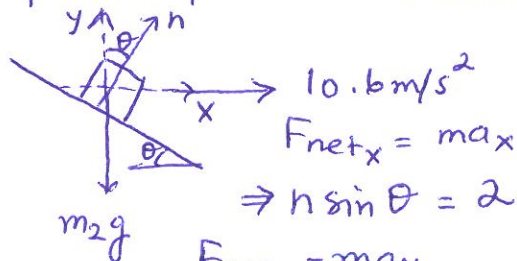 y θ n
10.6 m/s²
x
F_net_x = ma_x
θ
⇒ n sin θ = 2
m₂g